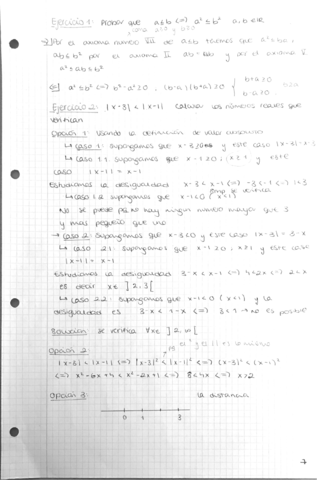 Ejercicio 1: Probar que a≤b <=> a² ≤ b² a, b ∈ IR
el axioma número VII de a≤b tenemos que a² ≤ ba,
ab ≤ b² por el axioma II ab = ba y por el axioma V
a² ≤ ab ≤ b²
a² ≤ b² <=> b² - a² ≥ 0 (b-a)(b+a) ≥ 0 { b+a ≥ 0
b-a ≥ 0
Ejercicio 2: |x-3| < |x-1| Calcula los números reales que
verifican
Opción 1: Usando la definición de valor
↳ Caso 1: supongamos que x-3 ≥ 0 y este caso |x-3| = x-3
↳ Caso 1.1 supongamos que x-1 ≥ 0; x ≥ 1 y este
caso |x-1| = x-1
Estudiamos la desigualdad x-3 < x-1 <=> -3 < -1
↳ Caso 1.2 supongamos que x-1 < 0 (x<1)
No se puede no hay ningún número mayor que 3
y más pequeño que uno
→ Caso 2: supongamos que x-3 < 0 y este caso |x-3| = 3-x
↳ Caso 2.1: supongamos que x-1 ≥ 0, x ≥ 1 y este caso
|x-1| = x-1
Estudiamos la desigualdad 3-x < x-1 <=> 4 < 2x <=> 2 < x
es decir x ∈ ]2, 3[
↳ Caso 2.2: supongamos que x-1 < 0 (x<1) y la
desigualdad es 3-x < 1-x <=> 3 < 1 no es
Solución: Se verifica ∀x ∈ ]2, ∞[
Opción 2:
|x-3| < |x-1| <=> |x-3|² < |x-1|² <=> (x-3)² < (x-1)²
<=> x² - 6x + 9 < x² - 2x + 1 <=> 8 < 4x <=> x > 2
Opción 3: la distancia
0 1 3